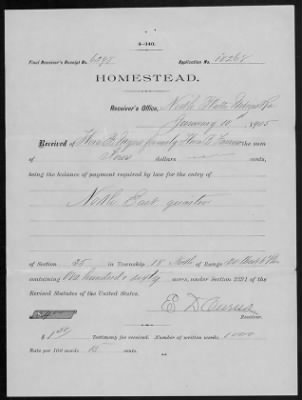 4-140.
Final Receiver's Receipt No. 6298 Application No. 18268
HOMESTEAD.
Receiver's Office, North Platte Nebraska
January 11 1905
Received of formerly the sum
of Four dollars cents,
being the balance of payment required by law for the entry of
North East quarter
of Section 35 in Township 18 North of Range 30 West 6 Pm
containing One hundred & sixty acres, under section 2291 of the
Revised Statutes of the United States.
Receiver.
$ Testimony fee received. Number of written words, 1000
Rate per 100 words 15 cents.